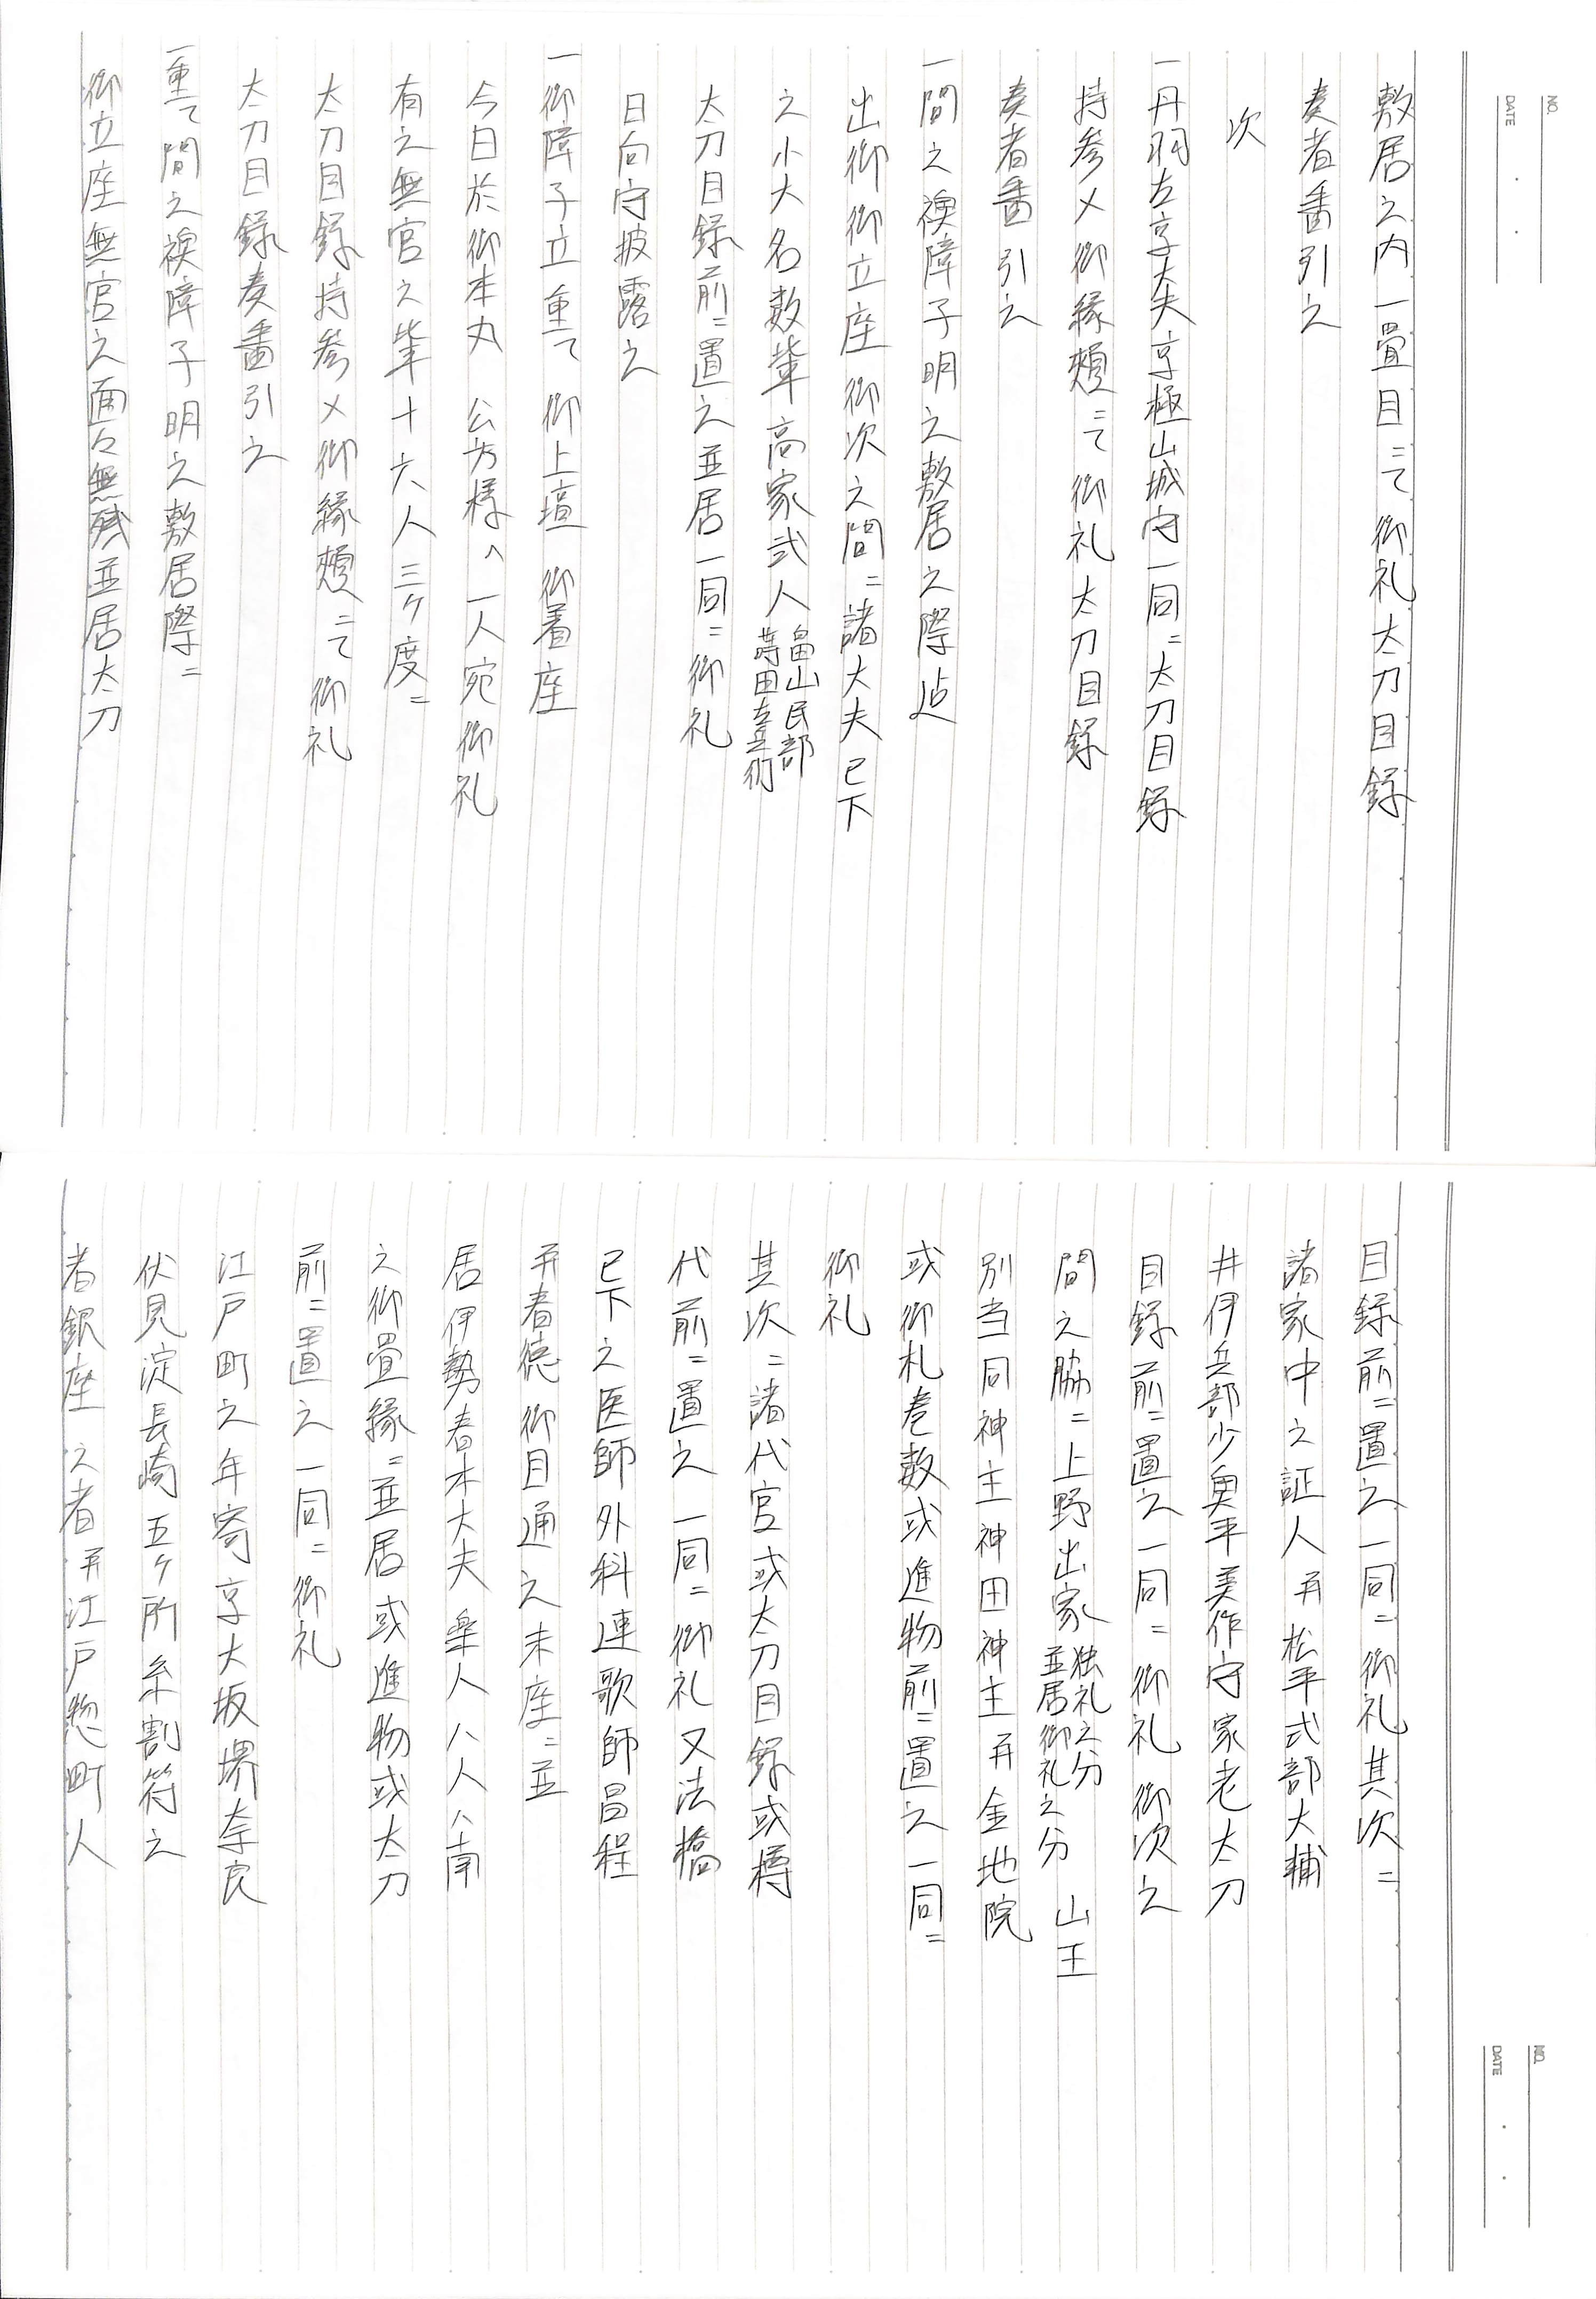 NO.
DATE
敷居之内一畳目ニて御礼太刀目録
奏者番引之
次
一丹羽左京大夫京極山城守一同ニ太刀目録
持参〆御縁頬ニて御礼太刀目録
奏者番引之
一間之襖障子明之敷居之際迠
出御御立座御次之間ニ諸大夫已下
之小大名数輩高家弐人畠山民部蒔田左兵衛
太刀目録前ニ置之並居一同ニ御礼
日向守披露之
一御障子立重て御上壇御着座
今日於御本丸 公方様へ一人宛御礼
有之無官之輩十六人三ケ度ニ
太刀目録持参〆御縁頬ニて御礼
太刀目録奏番引之
一重て間之襖障子明之敷居際ニ
御立座無官之面々無残並居太刀
NO.
DATE
目録前ニ置之一同ニ御礼其次ニ
諸家中之証人并松平式部大輔
井伊兵部少奥平美作守家老太刀
目録前ニ置之一同ニ御礼御次之
間之脇ニ上野出家独礼之分並居御礼之分 山王
別当同神主神田神主并金地院
或御札巻数或進物前ニ置之一同ニ
御礼
其次ニ諸代官或太刀目録或樽
代前ニ置之一同ニ御礼又法橋
已下之医師外科連歌師昌程
并春徳御目通之末座ニ並
居伊勢春木大夫楽人八人ハ南
之御畳縁ニ並居或進物或太刀
前ニ置之一同ニ御礼
江戸町之年寄京大坂堺奈良
伏見淀長崎五ケ所糸割符之
者銀座之者并江戸惣町人